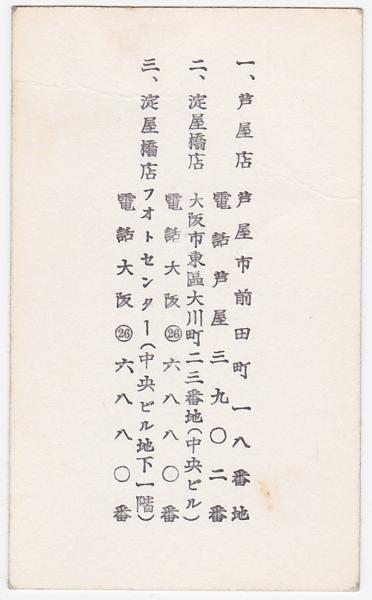 一、芦屋店 芦屋市前田町一八番地
電話芦屋三九〇二番
二、淀屋橋店 大阪市東區大川町二三番地(中央ビル)
電話大阪㉖六八八〇番
三、淀屋橋店 フオトセンター(中央ビル地下一階)
電話大阪㉖六八八〇番